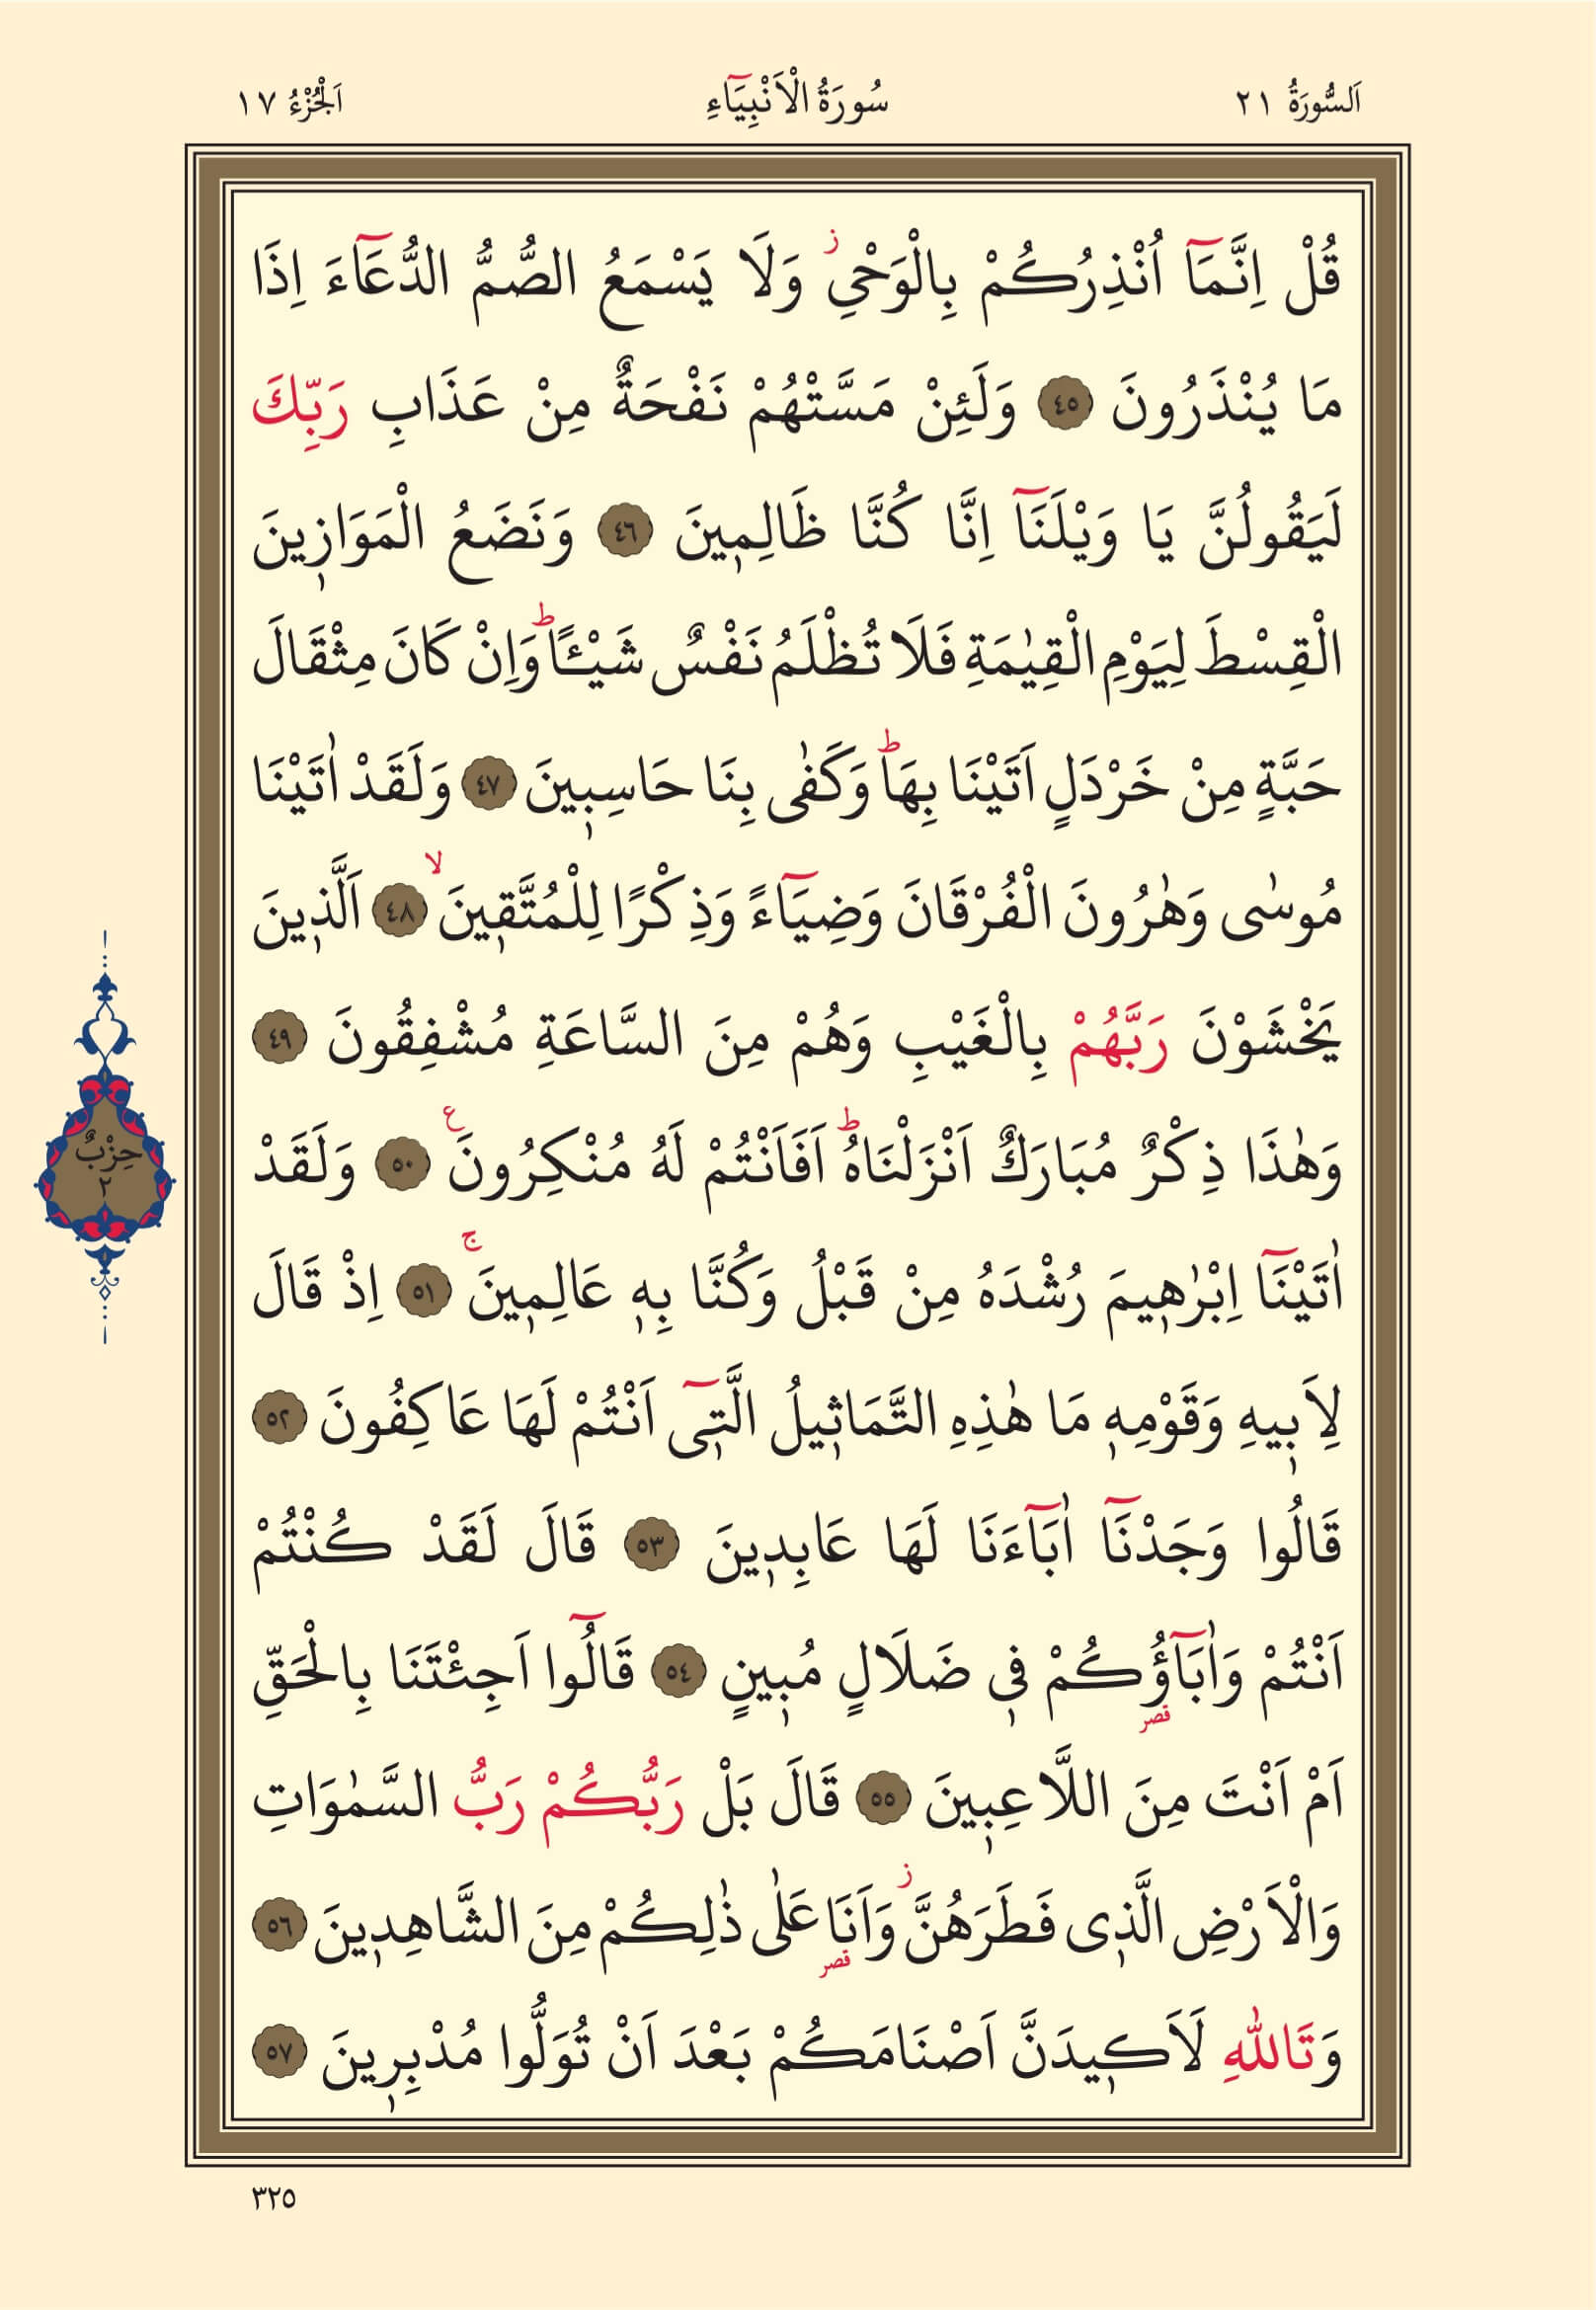 اَلسُّورَةُ ٢١
سُورَةُ الْاَنْبِيَٓاءِ
اَلْجُزْءُ ١٧
قُلْ اِنَّمَٓا اُنْذِرُكُمْ بِالْوَحْيِۘ ز وَلَا يَسْمَعُ الصُّمُّ الدُّعَٓاءَ اِذَا
مَا يُنْذَرُونَ ٤٥ وَلَئِنْ مَسَّتْهُمْ نَفْحَةٌ مِنْ عَذَابِ رَبِّكَ
لَيَقُولُنَّ يَا وَيْلَنَٓا اِنَّا كُنَّا ظَالِمٖينَ ٤٦ وَنَضَعُ الْمَوَازٖينَ
الْقِسْطَ لِيَوْمِ الْقِيٰمَةِ فَلَا تُظْلَمُ نَفْسٌ شَيْـًٔاؕ وَاِنْ كَانَ مِثْقَالَ
حَبَّةٍ مِنْ خَرْدَلٍ اَتَيْنَا بِهَاؕ وَكَفٰى بِنَا حَاسِبٖينَ ٤٧ وَلَقَدْ اٰتَيْنَا
مُوسٰى وَهٰرُونَ الْفُرْقَانَ وَضِيَٓاءً وَذِكْرًا لِلْمُتَّقٖينَۙ ٤٨ اَلَّذٖينَ
يَخْشَوْنَ رَبَّهُمْ بِالْغَيْبِ وَهُمْ مِنَ السَّاعَةِ مُشْفِقُونَ ٤٩
وَهٰذَا ذِكْرٌ مُبَارَكٌ اَنْزَلْنَاهُؕ اَفَاَنْتُمْ لَهُ مُنْكِرُونَ ع ٥٠ وَلَقَدْ
اٰتَيْنَٓا اِبْرٰهٖيمَ رُشْدَهُ مِنْ قَبْلُ وَكُنَّا بِهٖ عَالِمٖينَۚ ٥١ اِذْ قَالَ
لِاَبٖيهِ وَقَوْمِهٖ مَا هٰذِهِ التَّمَاثٖيلُ الَّتٖٓى اَنْتُمْ لَهَا عَاكِفُونَ ٥٢
قَالُوا وَجَدْنَٓا اٰبَٓاءَنَا لَهَا عَابِدٖينَ ٥٣ قَالَ لَقَدْ كُنْتُمْ
اَنْتُمْ وَاٰبَٓاؤُ۬كُمْ قصر فٖى ضَلَالٍ مُبٖينٍ ٥٤ قَالُٓوا اَجِئْتَنَا بِالْحَقِّ
اَمْ اَنْتَ مِنَ اللَّاعِبٖينَ ٥٥ قَالَ بَلْ رَبُّكُمْ رَبُّ السَّمٰوَاتِ
وَالْاَرْضِ الَّذٖى فَطَرَهُنَّ ز وَاَنَا قصر عَلٰى ذٰلِكُمْ مِنَ الشَّاهِدٖينَ ٥٦
وَتَاللّٰهِ لَاَكٖيدَنَّ اَصْنَامَكُمْ بَعْدَ اَنْ تُوَلُّوا مُدْبِرٖينَ ٥٧
حِزْبٌ
٢
٣٢٥